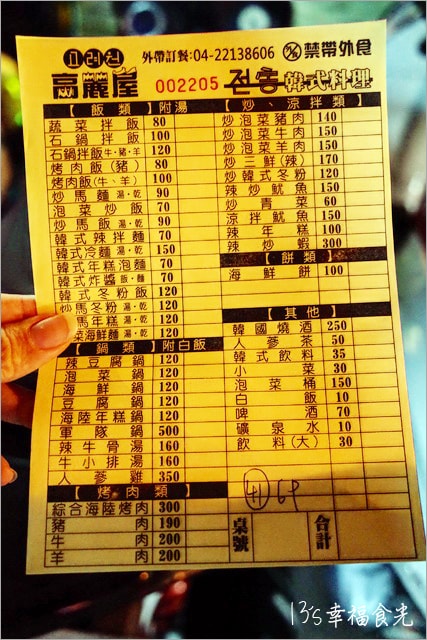 고려정 外帶訂餐:04-22138606 禁帶外食
高麗屋 002205 전통 韓式料理
【飯類】附湯
蔬菜拌飯 80
石鍋拌飯 100
石鍋拌飯牛·豬·羊 120
烤肉飯(豬) 80
烤肉飯(牛、羊) 100
炒馬麵湯·乾 90
泡菜炒飯 70
炒馬飯湯·乾 90
韓式辣拌麵 70
韓式冷麵湯·乾 150
韓式年糕泡麵 70
韓式炸醬飯·麵 70
韓式冬粉飯 120
炒馬冬粉湯·乾 120
馬年糕湯·乾 120
菜海鮮麵湯·乾 120
【鍋類】附白飯
辣豆腐鍋 120
泡菜鍋 120
海鮮鍋 120
豆腐鍋 120
海陸年糕鍋 120
軍隊鍋 500
辣牛骨湯 160
牛小排湯 160
人參雞 350
【烤肉類】
綜合海陸烤肉 300
豬肉 190
牛肉 200
羊肉 200
【炒、涼拌類】
炒泡菜豬肉 140
炒泡菜牛肉 150
炒泡菜羊肉 150
炒三鮮(辣) 170
炒韓式冬粉 120
辣炒魷魚 150
炒青菜 60
涼拌魷魚 150
辣年糕 100
辣炒蝦 300
【餅類】
海鮮餅 100
【其他】
韓國燒酒 250
人參茶 50
韓式飲料 35
小菜 30
泡菜桶 150
白飯 10
啤酒 70
礦泉水 10
飲料(大) 30
桌號
合計
13's幸福食光